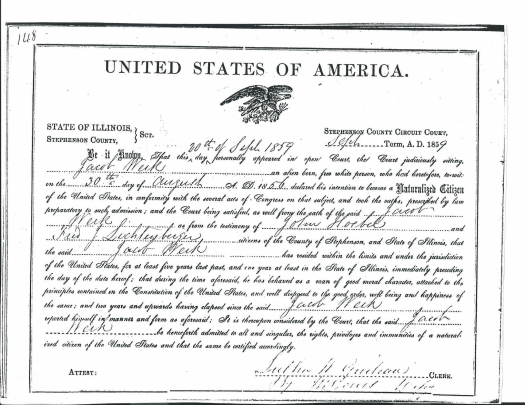 148
UNITED STATES OF AMERICA.
STATE OF ILLINOIS,
STEPHENSON COUNTY, } SCT.
STEPHENSON COUNTY CIRCUIT COURT,
Sept. Term, A. D. 1859
Be it Known, That this 20th of Sept. 1859 day, personally appeared in open Court, that Court judiciously sitting,
Jacob Weik an alien born, free white person, who had heretofore, to-wit:
on the 30th day of August A. D. 1856, declared his intention to become a Naturalized Citizen
of the United States, in conformity with the several acts of Congress on that subject, and took the oaths, prescribed by law
preparatory to such admission; and the Court being satisfied, as well from the oath of the said Jacob
Weik as from the testimony of John and
Fred citizens of the County of Stephenson, and State of Illinois, that
the said Jacob Weik has resided within the limits and under the jurisdiction
of the United States, for at least five years last past, and one year at least in the State of Illinois, immediately preceding
the day of the date hereof; that during the time aforesaid, he has behaved as a man of good moral character, attached to the
principles contained in the Constitution of the United States, and well disposed to the good order, well being and happiness of
the same; and two years and upwards having elapsed since the said Jacob Weik
reported himself in manner and form as aforesaid; It is thereupon considered by the Court, that the said Jacob
Weik be henceforth admitted to all and singular, the rights, privileges and immunities of a natural-
ized citizen of the United States and that the same be certified accordingly.
ATTEST:
CLERK.
By